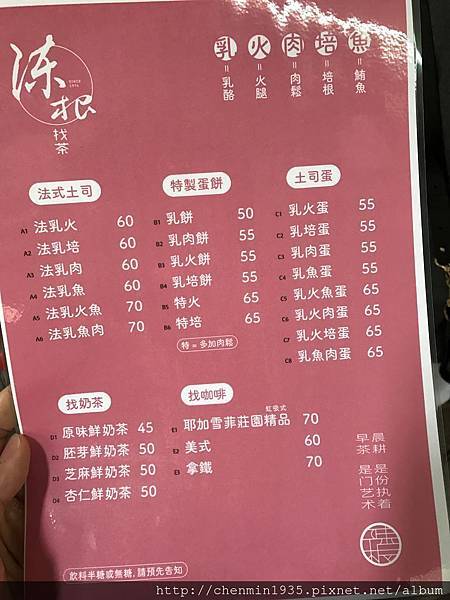 涷根
SINCE 1974
找茶
乳 火 肉 培 魚
= = = = =
乳酪 火腿 肉鬆 培根 鮪魚
法式土司
A1 法乳火 60
A2 法乳培 60
A3 法乳肉 60
A4 法乳魚 60
A5 法乳火魚 70
A6 法乳魚肉 70
特製蛋餅
B1 乳餅 50
B2 乳肉餅 55
B3 乳火餅 55
B4 乳培餅 55
B5 特火 65
B6 特培 65
特 = 多加肉鬆
土司蛋
C1 乳火蛋 55
C2 乳培蛋 55
C3 乳肉蛋 55
C4 乳魚蛋 55
C5 乳火魚蛋 65
C6 乳火肉蛋 65
C7 乳火培蛋 65
C8 乳魚肉蛋 65
找奶茶
D1 原味鮮奶茶 45
D2 胚芽鮮奶茶 50
D3 芝麻鮮奶茶 50
D4 杏仁鮮奶茶 50
找咖啡
虹吸式
E1 耶加雪菲莊園精品 70
E2 美式 60
E3 拿鐵 70
晨耕 是份执着
早茶 是门艺术
飲料半糖或無糖,請預先告知
http://chenmin1935.pixnet.net/album